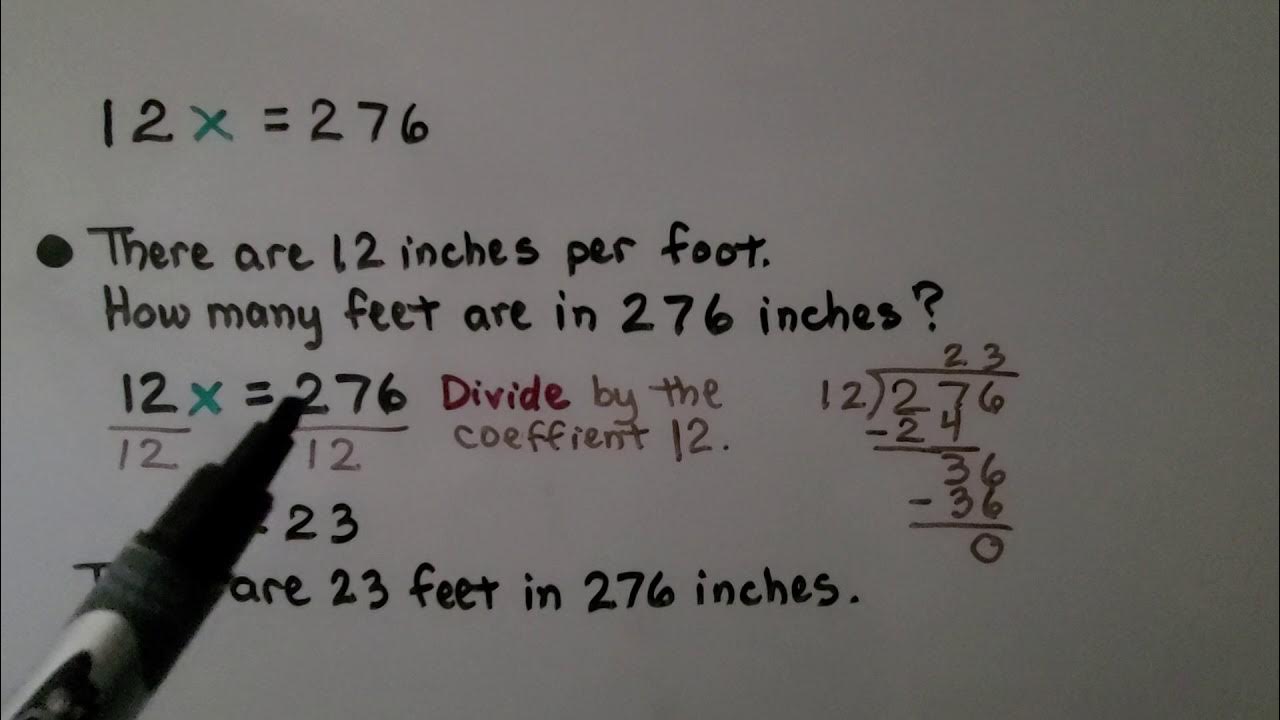 12x = 276
There are 12 inches per foot.
How many feet are in 276 inches?
12x = 276 Divide by the
12 12 coeffient 12.
23
are 23 feet in 276 inches.
23
12)276
-24
36
-36
0